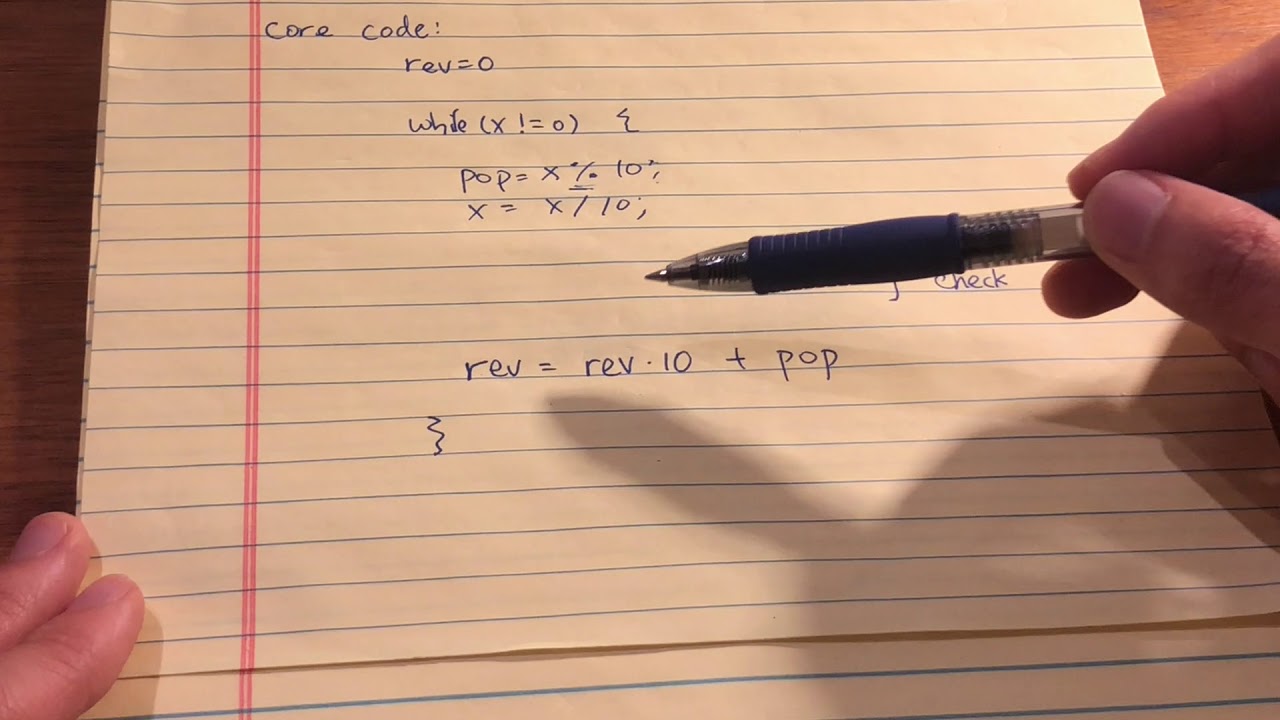 core code:
rev=0
while (x != 0) {
pop= x % 10;
x = x / 10;
} check
rev = rev · 10 + pop
}